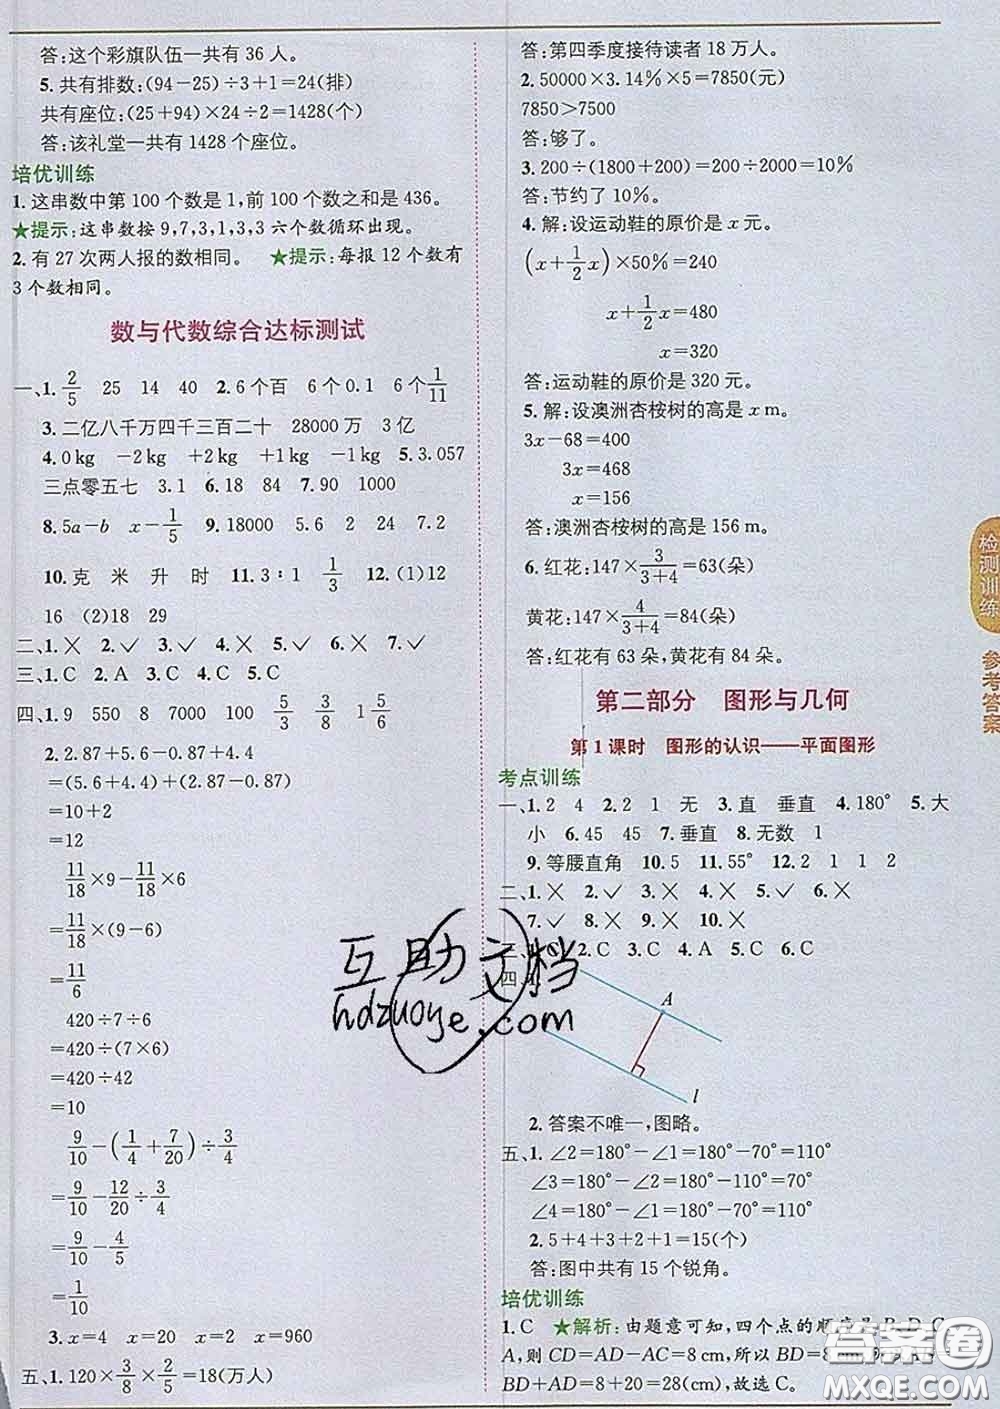 答:这个彩旗队伍一共有 36 人。
5. 共有排数:(94-25)÷3+1=24(排)
共有座位:(25+94)×24÷2=1428(个)
答:该礼堂一共有 1428 个座位。
培优训练
1. 这串数中第 100 个数是 1,前 100 个数之和是 436。
★提示:这串数按 9,7,3,1,3,3 六个数循环出现。
2. 有 27 次两人报的数相同。 ★提示:每报 12 个数有
3 个数相同。
数与代数综合达标测试
一、1. 2/5 25 14 40 2. 6 个百 6 个 0.1 6 个 1/11
3. 二亿八千万四千三百二十 28000 万 3 亿
4. 0 kg -2 kg +2 kg +1 kg -1 kg 5. 3.057
三点零五七 3.1 6. 18 84 7. 90 1000
8. 5a-b x-1/5 9. 18000 5.6 2 24 7.2
10. 克 米 升 时 11. 3∶1 1/3 12. (1)12
16 (2)18 29
二、1.× 2.✓ 3.✓ 4.× 5.× 6.× 7.✓
三、1. C 2. A 3. C 4. C 5. C
四、1. 9 550 8 7000 100 5/3 3/8 1 5/6
2. 2.87+5.6-0.87+4.4
=(2.87-0.87)+(5.6+4.4)
=10+2
=12
11/18×9-11/18×6
=11/18×(9-6)
=11/6
420÷7÷6
=420÷(7×6)
=420÷42
=10
9/10-(1/4+7/20)÷3/4
=9/10-12/20÷3/4
=9/10-4/5
=1/10
3. x=4 x=20 x=2 x=960
五、1. 120×3/8×2/5=18(万人)
答:第四季度接待读者 18 万人。
2. 50000×3.14%×5=7850(元)
7850>7500
答:够了。
3. 200÷(1800+200)=200÷2000=10%
答:节约了 10%。
4. 解:设运动鞋的原价是 x 元。
(x+1/2x)×50%=240
x+1/2x=480
x=320
答:运动鞋的原价是 320 元。
5. 解:设澳洲杏桉树的高是 x m。
3x-68=400
3x=468
x=156
答:澳洲杏桉树的高是 156 m。
6. 红花:147×3/(3+4)=63(朵)
黄花:147×4/(3+4)=84(朵)
答:红花有 63 朵,黄花有 84 朵。
第二部分 图形与几何
第 1 课时 图形的认识——平面图形
考点训练
一、1. 2 4 2. 2 1 无 3. 直 垂直 4. 180° 5. 大
小 6. 45 45 7. 垂直 8. 无数 1
9. 等腰直角 10. 5 11. 55° 12. 2 1 1 2
二、1.× 2.✓ 3.× 4.× 5.× 6.×
7.✓ 8.× 9.× 10.×
2. C 3. C 4. A 5. C 6. C
四、
A
l
2. 答案不唯一,图略。
五、1. ∠2=180°-∠1=180°-70°=110°
∠3=180°-∠2=180°-110°=70°
∠4=180°-∠1=180°-70°=110°
2. 5+4+3+2+1=15(个)
答:图中共有 15 个锐角。
培优训练
1. C ★解析:由题意可知,四个点的顺序是 B、D、C、
A,则 CD=AD-AC=8 cm,所以 BD=8 cm
BD+AD=8+20=28(cm),故选 C。
检测训练
参考答案
互助文档
hdzuoye.com
答案圈
MXQE.COM